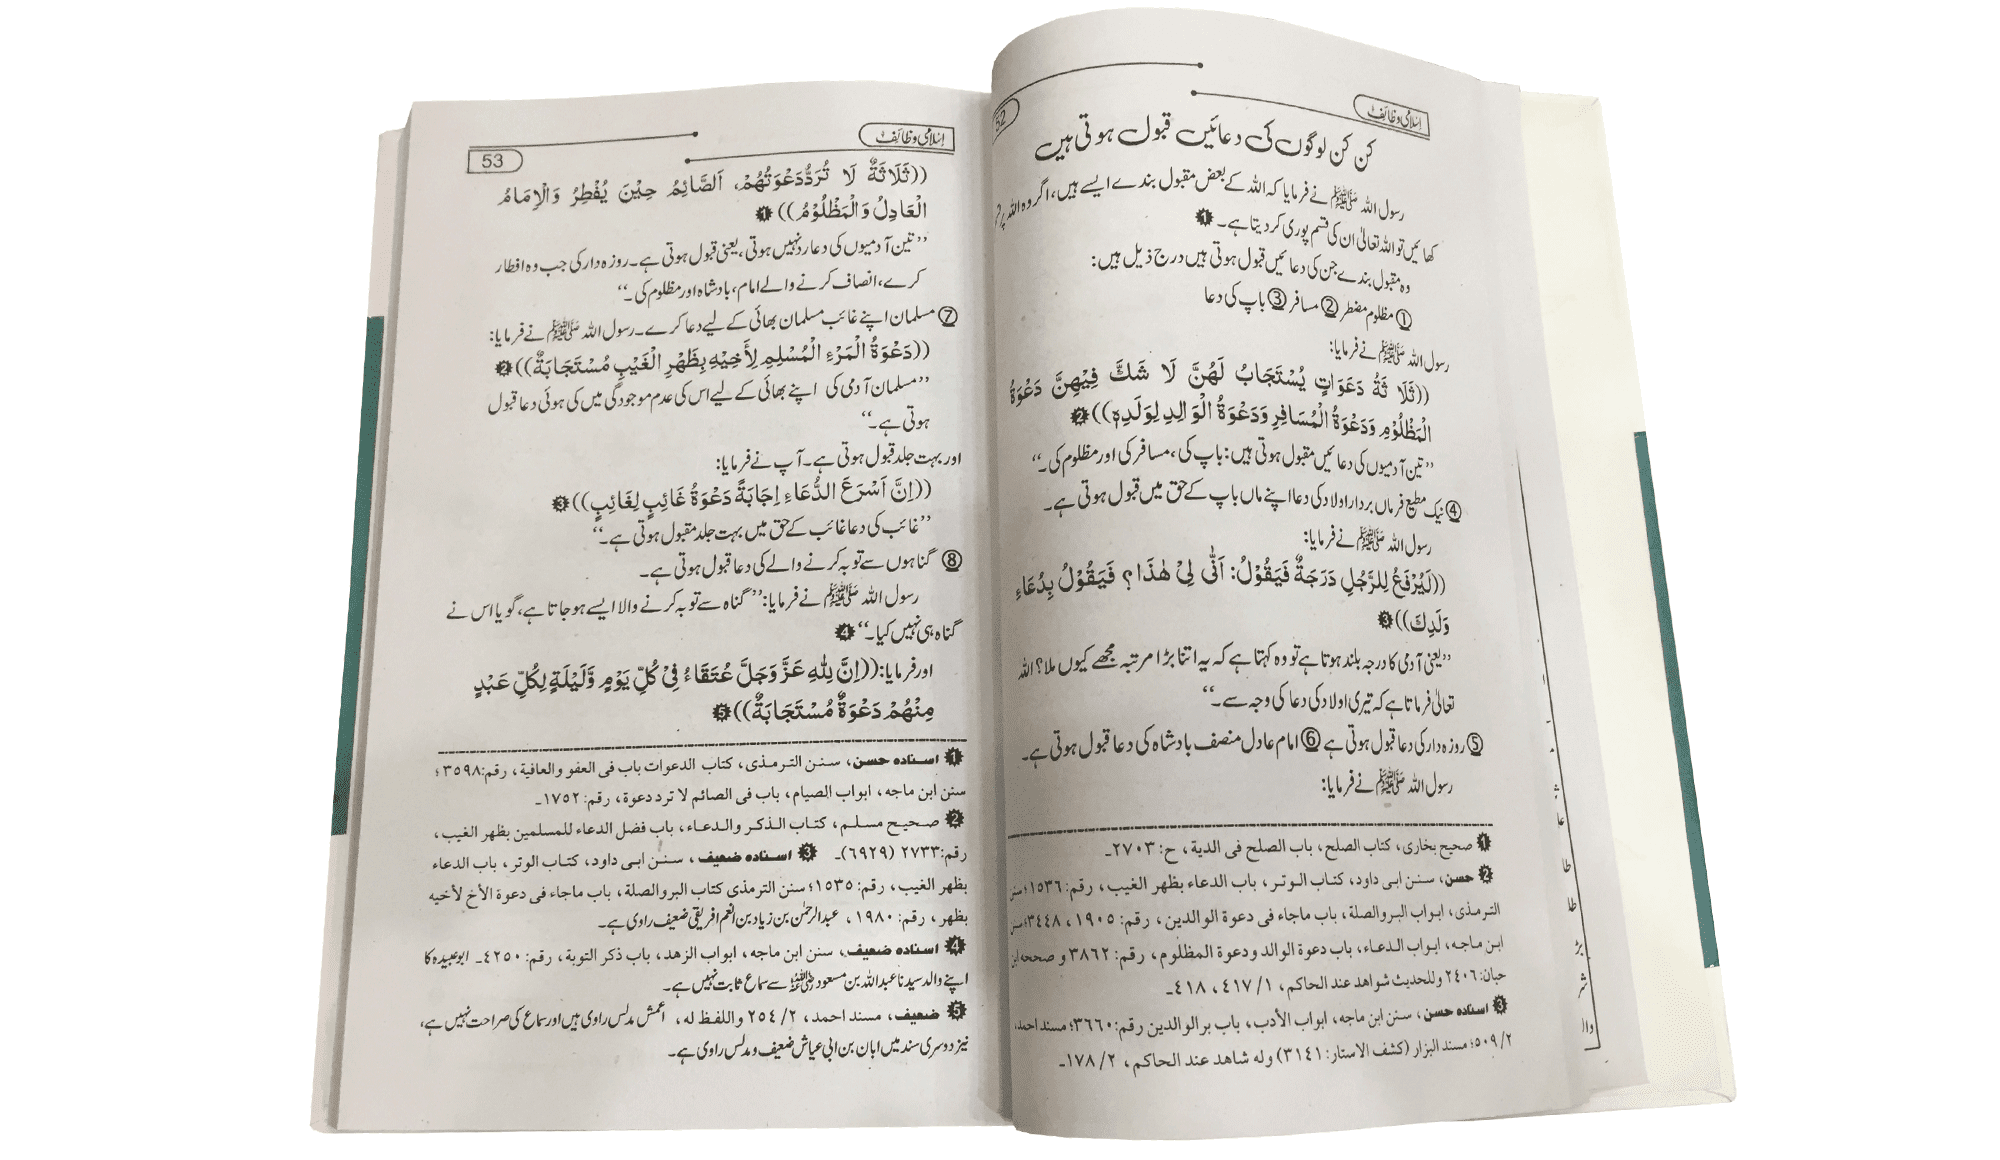 اسلامی وظائف
52
کن کن لوگوں کی دعائیں قبول ہوتی ہیں
رسول اللہ ﷺ نے فرمایا کہ اللہ کے بعض مقبول بندے ایسے ہیں، اگر وہ اللہ پر قسم
کھائیں تو اللہ تعالیٰ ان کی قسم پوری کر دیتا ہے۔ ❶
وہ مقبول بندے جن کی دعائیں قبول ہوتی ہیں درج ذیل ہیں:
① مظلوم مضطر ② مسافر ③ باپ کی دعا
رسول اللہ ﷺ نے فرمایا:
((ثَلَا ثَةُ دَعَوَاتٍ يُسْتَجَابُ لَهُنَّ لَا شَكَّ فِيْهِنَّ دَعْوَةُ
الْمَظْلُوْمِ وَدَعْوَةُ الْمُسَافِرِ وَدَعْوَةُ الْوَالِدِ لِوَلَدِهٖ)) ❷
’’تین آدمیوں کی دعائیں مقبول ہوتی ہیں: باپ کی، مسافر کی اور مظلوم کی۔‘‘
④ نیک مطیع فرماں بردار اولاد کی دعا اپنے ماں باپ کے حق میں قبول ہوتی ہے۔
رسول اللہ ﷺ نے فرمایا:
((لَيُرْفَعُ لِلرَّجُلِ دَرَجَةٌ فَيَقُوْلُ: اَنّٰى لِيْ هٰذَا؟ فَيَقُوْلُ بِدُعَاءِ
وَلَدِكَ)) ❸
’’یعنی آدمی کا درجہ بلند ہوتا ہے تو وہ کہتا ہے کہ یہ اتنا بڑا مرتبہ مجھے کیوں ملا؟ اللہ
تعالیٰ فرماتا ہے کہ تیری اولاد کی دعا کی وجہ سے۔‘‘
⑤ روزہ دار کی دعا قبول ہوتی ہے ⑥ امام عادل منصف بادشاہ کی دعا قبول ہوتی ہے۔
رسول اللہ ﷺ نے فرمایا:
❶ صحیح بخاری، کتاب الصلح، باب الصلح فی الدیة، ح: ۲۷۰۳۔
❷ حسن، سنن ابی داود، کتاب الوتر، باب الدعاء بظهر الغیب، رقم: ۱۵۳۶؛ سنن
الترمذی، ابواب البر والصلة، باب ماجاء فی دعوة الوالدین، رقم: ۱۹۰۵، ۳۴۴۸؛ سنن
ابن ماجه، ابواب الدعاء، باب دعوة الوالد ودعوة المظلوم، رقم: ۳۸۶۲ و صححه ابن
حبان: ۲۴۰۶ وللحدیث شواهد عند الحاکم، ۱/ ۴۱۷، ۴۱۸۔
❸ اسناده حسن، سنن ابن ماجه، ابواب الأدب، باب بر الوالدین رقم: ۳۶۶۰؛ مسند احمد،
۲/ ۵۰۹؛ مسند البزار (کشف الاستار: ۳۱۴۱) وله شاهد عند الحاکم، ۲/ ۱۷۸۔
اسلامی وظائف
53
((ثَلَاثَةٌ لَا تُرَدُّدَعْوَتُهُمْ، اَلصَّائِمُ حِيْنَ يُفْطِرُ وَالْاِمَامُ
الْعَادِلُ وَالْمَظْلُوْمُ)) ❶
’’تین آدمیوں کی دعا رد نہیں ہوتی، یعنی قبول ہوتی ہے۔ روزہ دار کی جب وہ افطار
کرے، انصاف کرنے والے امام، بادشاہ اور مظلوم کی۔‘‘
⑦ مسلمان اپنے غائب مسلمان بھائی کے لیے دعا کرے۔ رسول اللہ ﷺ نے فرمایا:
((دَعْوَةُ الْمَرْءِ الْمُسْلِمِ لِأَخِيْهِ بِظَهْرِ الْغَيْبِ مُسْتَجَابَةٌ)) ❷
’’مسلمان آدمی کی اپنے بھائی کے لیے اس کی عدم موجودگی میں کی ہوئی دعا قبول
ہوتی ہے۔‘‘
اور بہت جلد قبول ہوتی ہے۔ آپ نے فرمایا:
((اِنَّ اَسْرَعَ الدُّعَاءِ اِجَابَةً دَعْوَةُ غَائِبٍ لِغَائِبٍ)) ❸
’’غائب کی دعا غائب کے حق میں بہت جلد مقبول ہوتی ہے۔‘‘
⑧ گناہوں سے توبہ کرنے والے کی دعا قبول ہوتی ہے۔
رسول اللہ ﷺ نے فرمایا: ’’گناہ سے توبہ کرنے والا ایسے ہو جاتا ہے، گویا اس نے
گناہ ہی نہیں کیا۔‘‘ ❹
اور فرمایا: ((اِنَّ لِلّٰهِ عَزَّ وَجَلَّ عُتَقَاءُ فِيْ كُلِّ يَوْمٍ وَّلَيْلَةٍ لِكُلِّ عَبْدٍ
مِنْهُمْ دَعْوَةٌ مُسْتَجَابَةٌ)) ❺
❶ اسناده حسن، سنن الترمذی، کتاب الدعوات باب فی العفو والعافیة، رقم: ۳۵۹۸؛
سنن ابن ماجه، ابواب الصیام، باب فی الصائم لا ترد دعوة، رقم: ۱۷۵۲۔
❷ صحیح مسلم، کتاب الذکر والدعاء، باب فضل الدعاء للمسلمین بظهر الغیب،
رقم: ۲۷۳۳ (۶۹۲۹)۔ ❸ اسناده ضعیف، سنن ابی داود، کتاب الوتر، باب الدعاء
بظهر الغیب، رقم: ۱۵۳۵؛ سنن الترمذی کتاب البر والصلة، باب ماجاء فی دعوة الأخ لأخیه
بظهر، رقم: ۱۹۸۰، عبدالرحمٰن بن زیاد بن انعم افریقی ضعیف راوی ہے۔
❹ اسناده ضعیف، سنن ابن ماجه، ابواب الزهد، باب ذکر التوبة، رقم: ۴۲۵۰۔ ابوعبیدہ کا
اپنے والد سیدنا عبداللہ بن مسعود رضی اللہ عنہ سے سماع ثابت نہیں ہے۔
❺ ضعیف، مسند احمد، ۲/ ۲۵۴ واللفظ له، اعمش مدلس راوی ہیں اور سماع کی صراحت نہیں ہے،
نیز دوسری سند میں ابان بن ابی عیاش ضعیف و مدلس راوی ہے۔